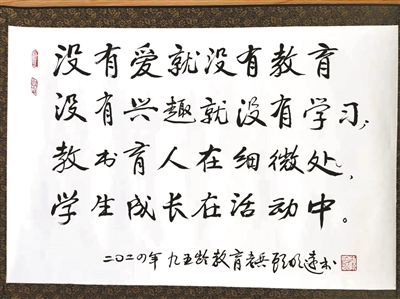 没有爱就没有教育
没有兴趣就没有学习；
教书育人在细微处，
学生成长在活动中。
二〇二四年 九五龄教育老兵 顾明远书